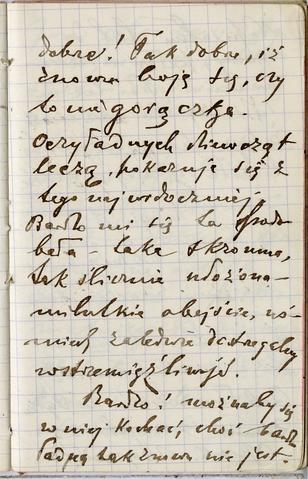 dobrze! Tak dobrze, iż
znowu boję się, czy
to nie gorączka.
Oczy ładnych dziewcząt
leczą, pokazuje się z
tego najwidoczniej.
Bardzo mi się ta podo-
bała – taka skromna,
tak ślicznie ułożona –
milutkie obejście, uś-
miech zaledwie dostrzegalny
wstrzemięźliwość.
Bardzo! możnaby się
w niej kochać, choć bardzo
ładną tak znowu nie jest.